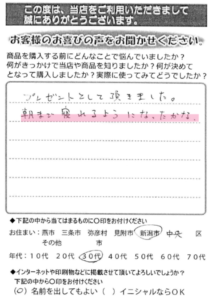 この度は、当店をご利用いただきまして
誠にありがとうございます。
お客様のお喜びの声をお聞かせください。
商品を購入する前にどんなことで悩んでいましたか？
何がきっかけで当店や商品を知りましたか？何が決めて
となって購入しましたか？実際に使ってみてどうでしたか？
プレゼントとして頂きました。
朝まで寝れるようになったかな
◆下記の中から当てはまるものに○印をお付けください
お住まい：燕市 三条市 弥彦村 見附市 新潟市 中央 区
その他 市
年代：10代 20代 30代 40代 50代 60代 70代
◆インターネットや印刷物などに掲載させて頂いてよろしいでしょうか？
下記の中から○印をお付けください
（○）名前を出してもよい （ ）イニシャルならOK